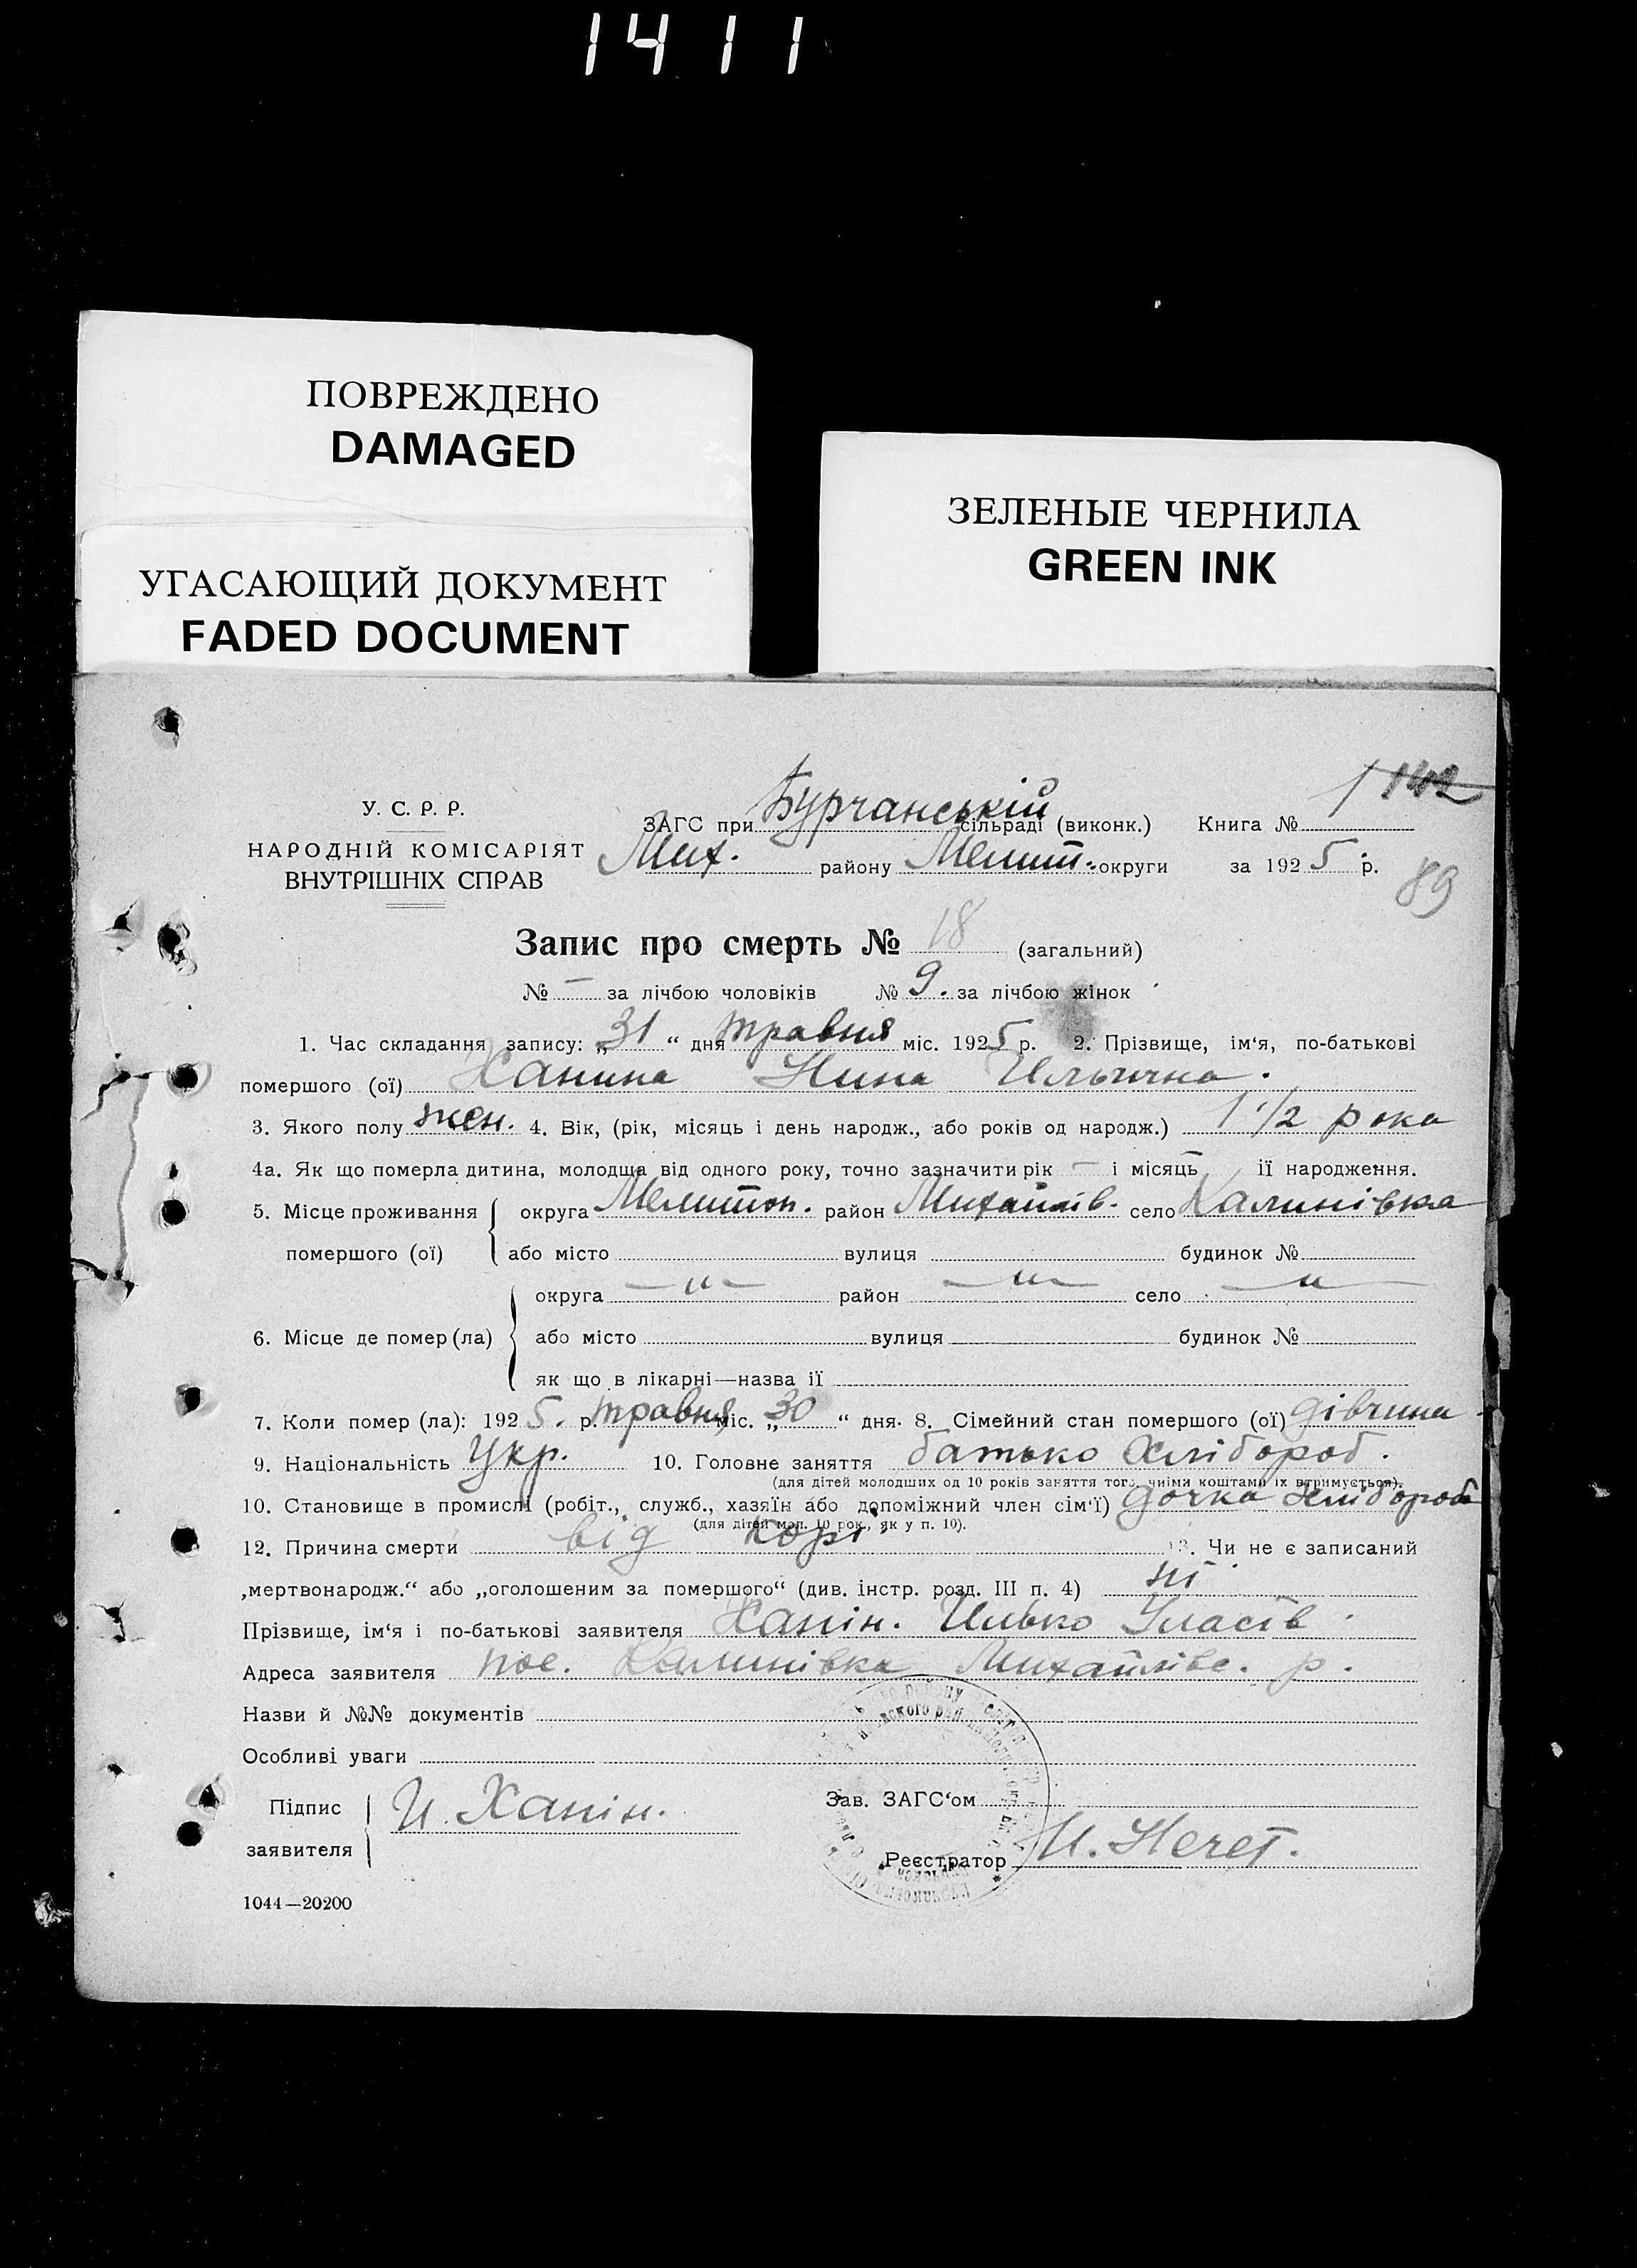 1411
ПОВРЕЖДЕНО
DAMAGED
УГАСАЮЩИЙ ДОКУМЕНТ
FADED DOCUMENT
ЗЕЛЕНЫЕ ЧЕРНИЛА
GREEN INK
142
У. С. Р. Р.
НАРОДНІЙ КОМІСАРІЯТ
ВНУТРІШНІХ СПРАВ
ЗАГС при Бурчанській сільраді (виконк.) Книга № 1
Мих. району Мелит. округи за 1925 р.
89
Запис про смерть № 18 (загальний)
№ — за лічбою чоловіків № 9. за лічбою жінок
1. Час складання запису: „31“ дня травня міс. 1925 р. 2. Прізвище, ім‘я, по-батькові
помершого (ої) Ханина Нина Ильична.
3. Якого полу жен. 4. Вік, (рік, місяць і день народж., або років од народж.) 1 1/2 рока
4а. Як що померла дитина, молодща від одного року, точно зазначити рік — і місяць — ії народження.
5. Місце проживання помершого (ої) округа Мелитоп. район Михайлів. село Калинівка
або місто вулиця будинок №
6. Місце де помер (ла) округа —„— район —„— село —„—
або місто вулиця будинок №
як що в лікарні—назва ії
7. Коли помер (ла): 1925. р. травня міс. „30“ дня. 8. Сімейний стан помершого (ої) дівчина
9. Національність Укр. 10. Головне заняття батько хлібороб.
(для дітей молодших од 10 років заняття того, чиїми коштами їх втримується).
10. Становище в промислі (робіт., служб., хазяїн або допоміжний член сім‘ї) дочка хлібороба
(для дітей мол. 10 рок., як у п. 10).
12. Причина смерти від корі 13. Чи не є записаний
„мертвонародж.“ або „оголошеним за помершого“ (див. інстр. розд. III п. 4) ні
Прізвище, ім‘я і по-батькові заявителя Ханін. Илько Уласів
Адреса заявителя пос. Калинівка Михайлівс. р.
Назви й №№ документів
Особливі уваги
Підпис заявителя И. Ханін.
Зав. ЗАГС‘ом
Реєстратор
1044—20200